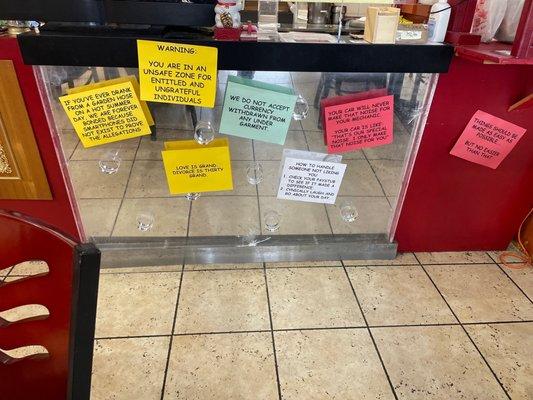 WARNING:
YOU ARE IN AN
UNSAFE ZONE FOR
ENTITLED AND
UNGRATEFUL
INDIVIDUALS
IF YOU'VE EVER DRANK
FROM A GARDEN HOSE
ON A HOT SUMMER
DAY, WE ARE FOREVER
BONDED BECAUSE
SMARTPHONES DID
NOT EXIST TO PROVE
THE ALLEGATIONS
WE DO NOT ACCEPT
CURRENCY
WITHDRAWN FROM
ANY UNDER
GARMENT.
YOUR CAR WILL NEVER
MAKE THAT NOISE FOR
YOUR MECHANIC.
YOUR CAR IS LIKE
"THAT'S OUR SPECIAL
NOISE I ONLY MAKE
FOR YOU."
THINGS SHOULD BE
MADE AS EASY AS
POSSIBLE.
BUT NO EASIER
THAN THAT.
LOVE IS GRAND.
DIVORCE IS THIRTY
GRAND.
HOW TO HANDLE
SOMEONE NOT LIKING
YOU:
1. CHECK YOUR PAYSTUB
TO SEE IF IT MADE A
DIFFERENCE.
2. CYNICALLY LAUGH AND
GO ABOUT YOUR DAY.